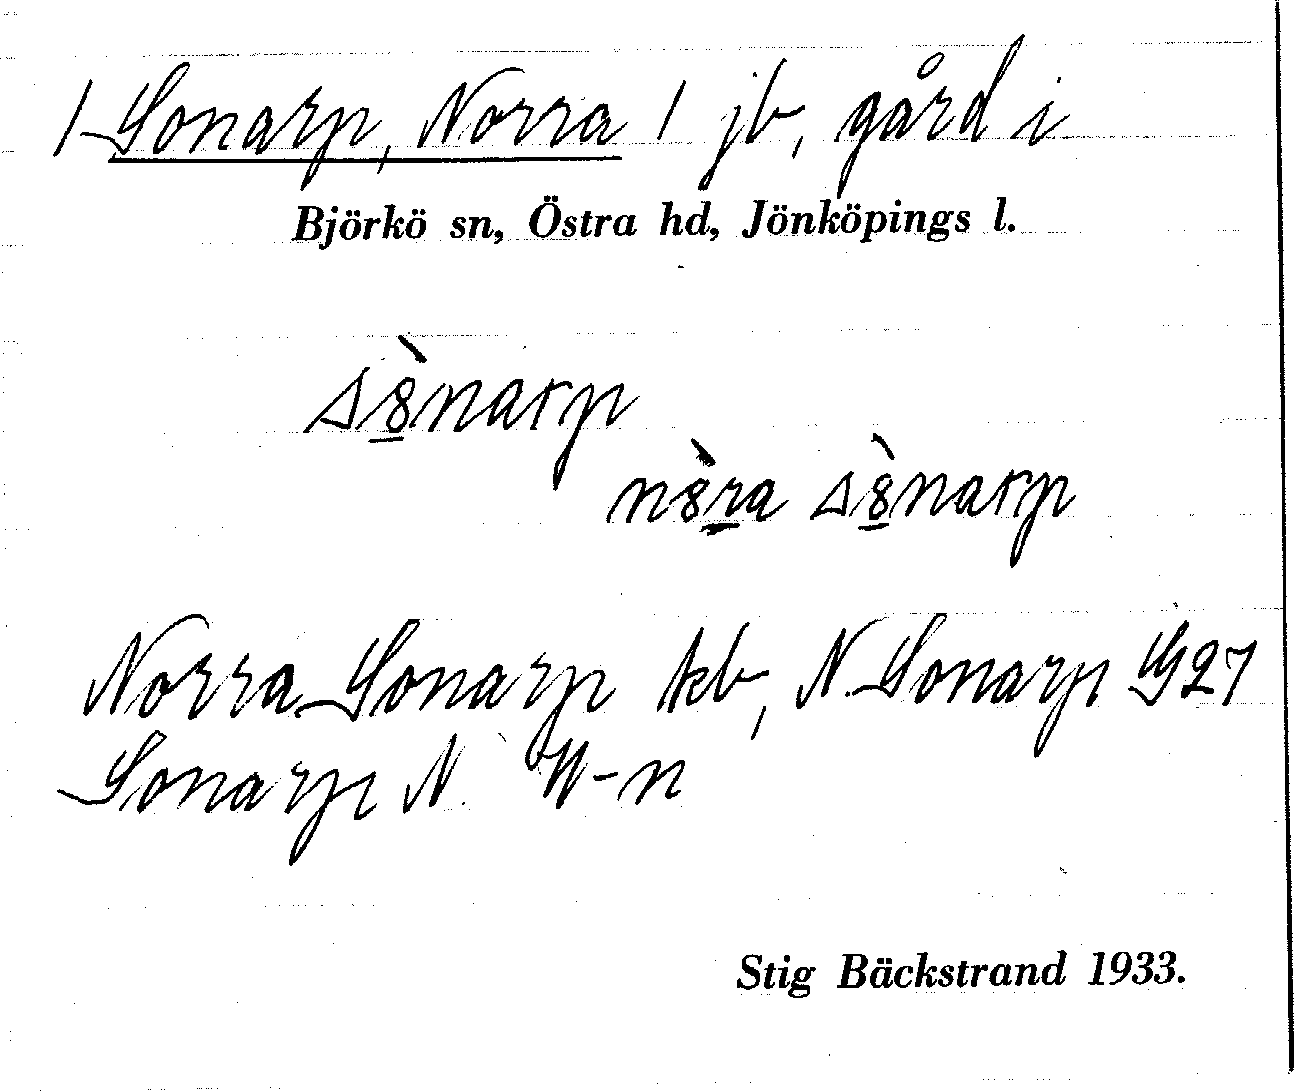 / Sonarp, Norra / jb, gård i
Björkö sn, Östra hd, Jönköpings l.
s8̲̀narp
n8̀r̲a s8̲̀narp
Norra Sonarp kb, N. Sonarp G27
Sonarp N. W-n
Stig Bäckstrand 1933.